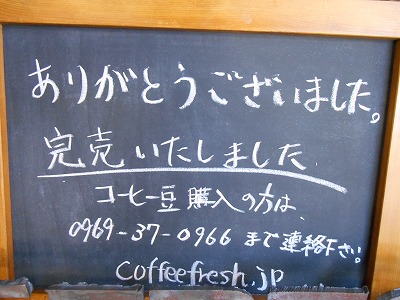 ありがとうございました。
完売いたしました
コーヒー豆購入の方は、
0969-37-0966 まで連絡下さい。
coffeefresh.jp